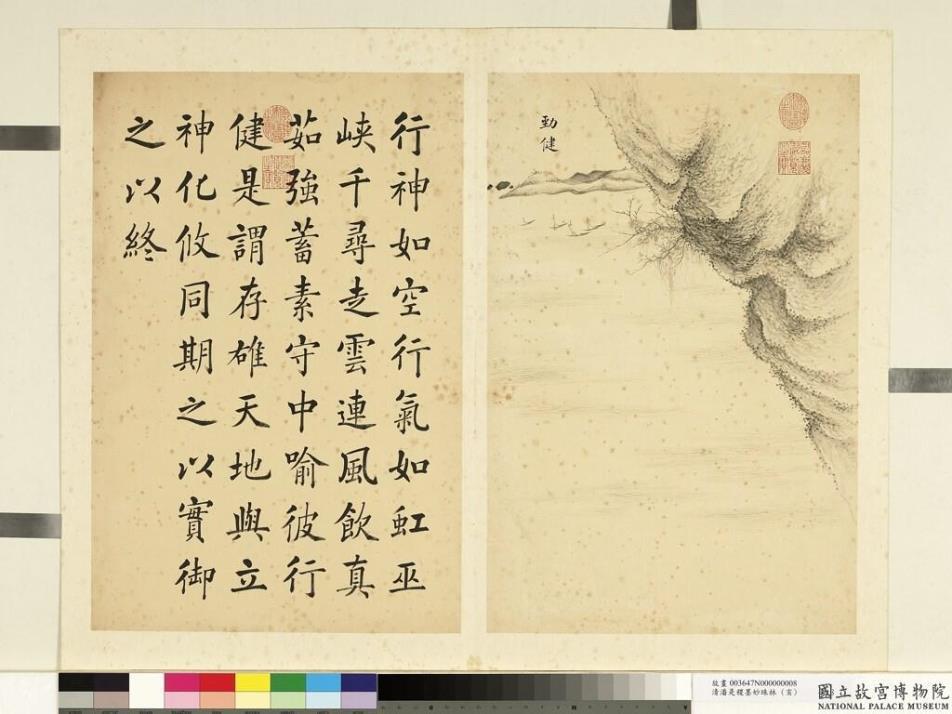 勁健
行神如空行氣如虹巫
峽千尋走雲連風飲真
茹強蓄素守中喻彼行
健是謂存雄天地與立
神化攸同期之以實御
之以終
故畫 003647N000000008
清潘是稷墨妙珠林
國立故宮博物院
NATIONAL PALACE MUSEUM